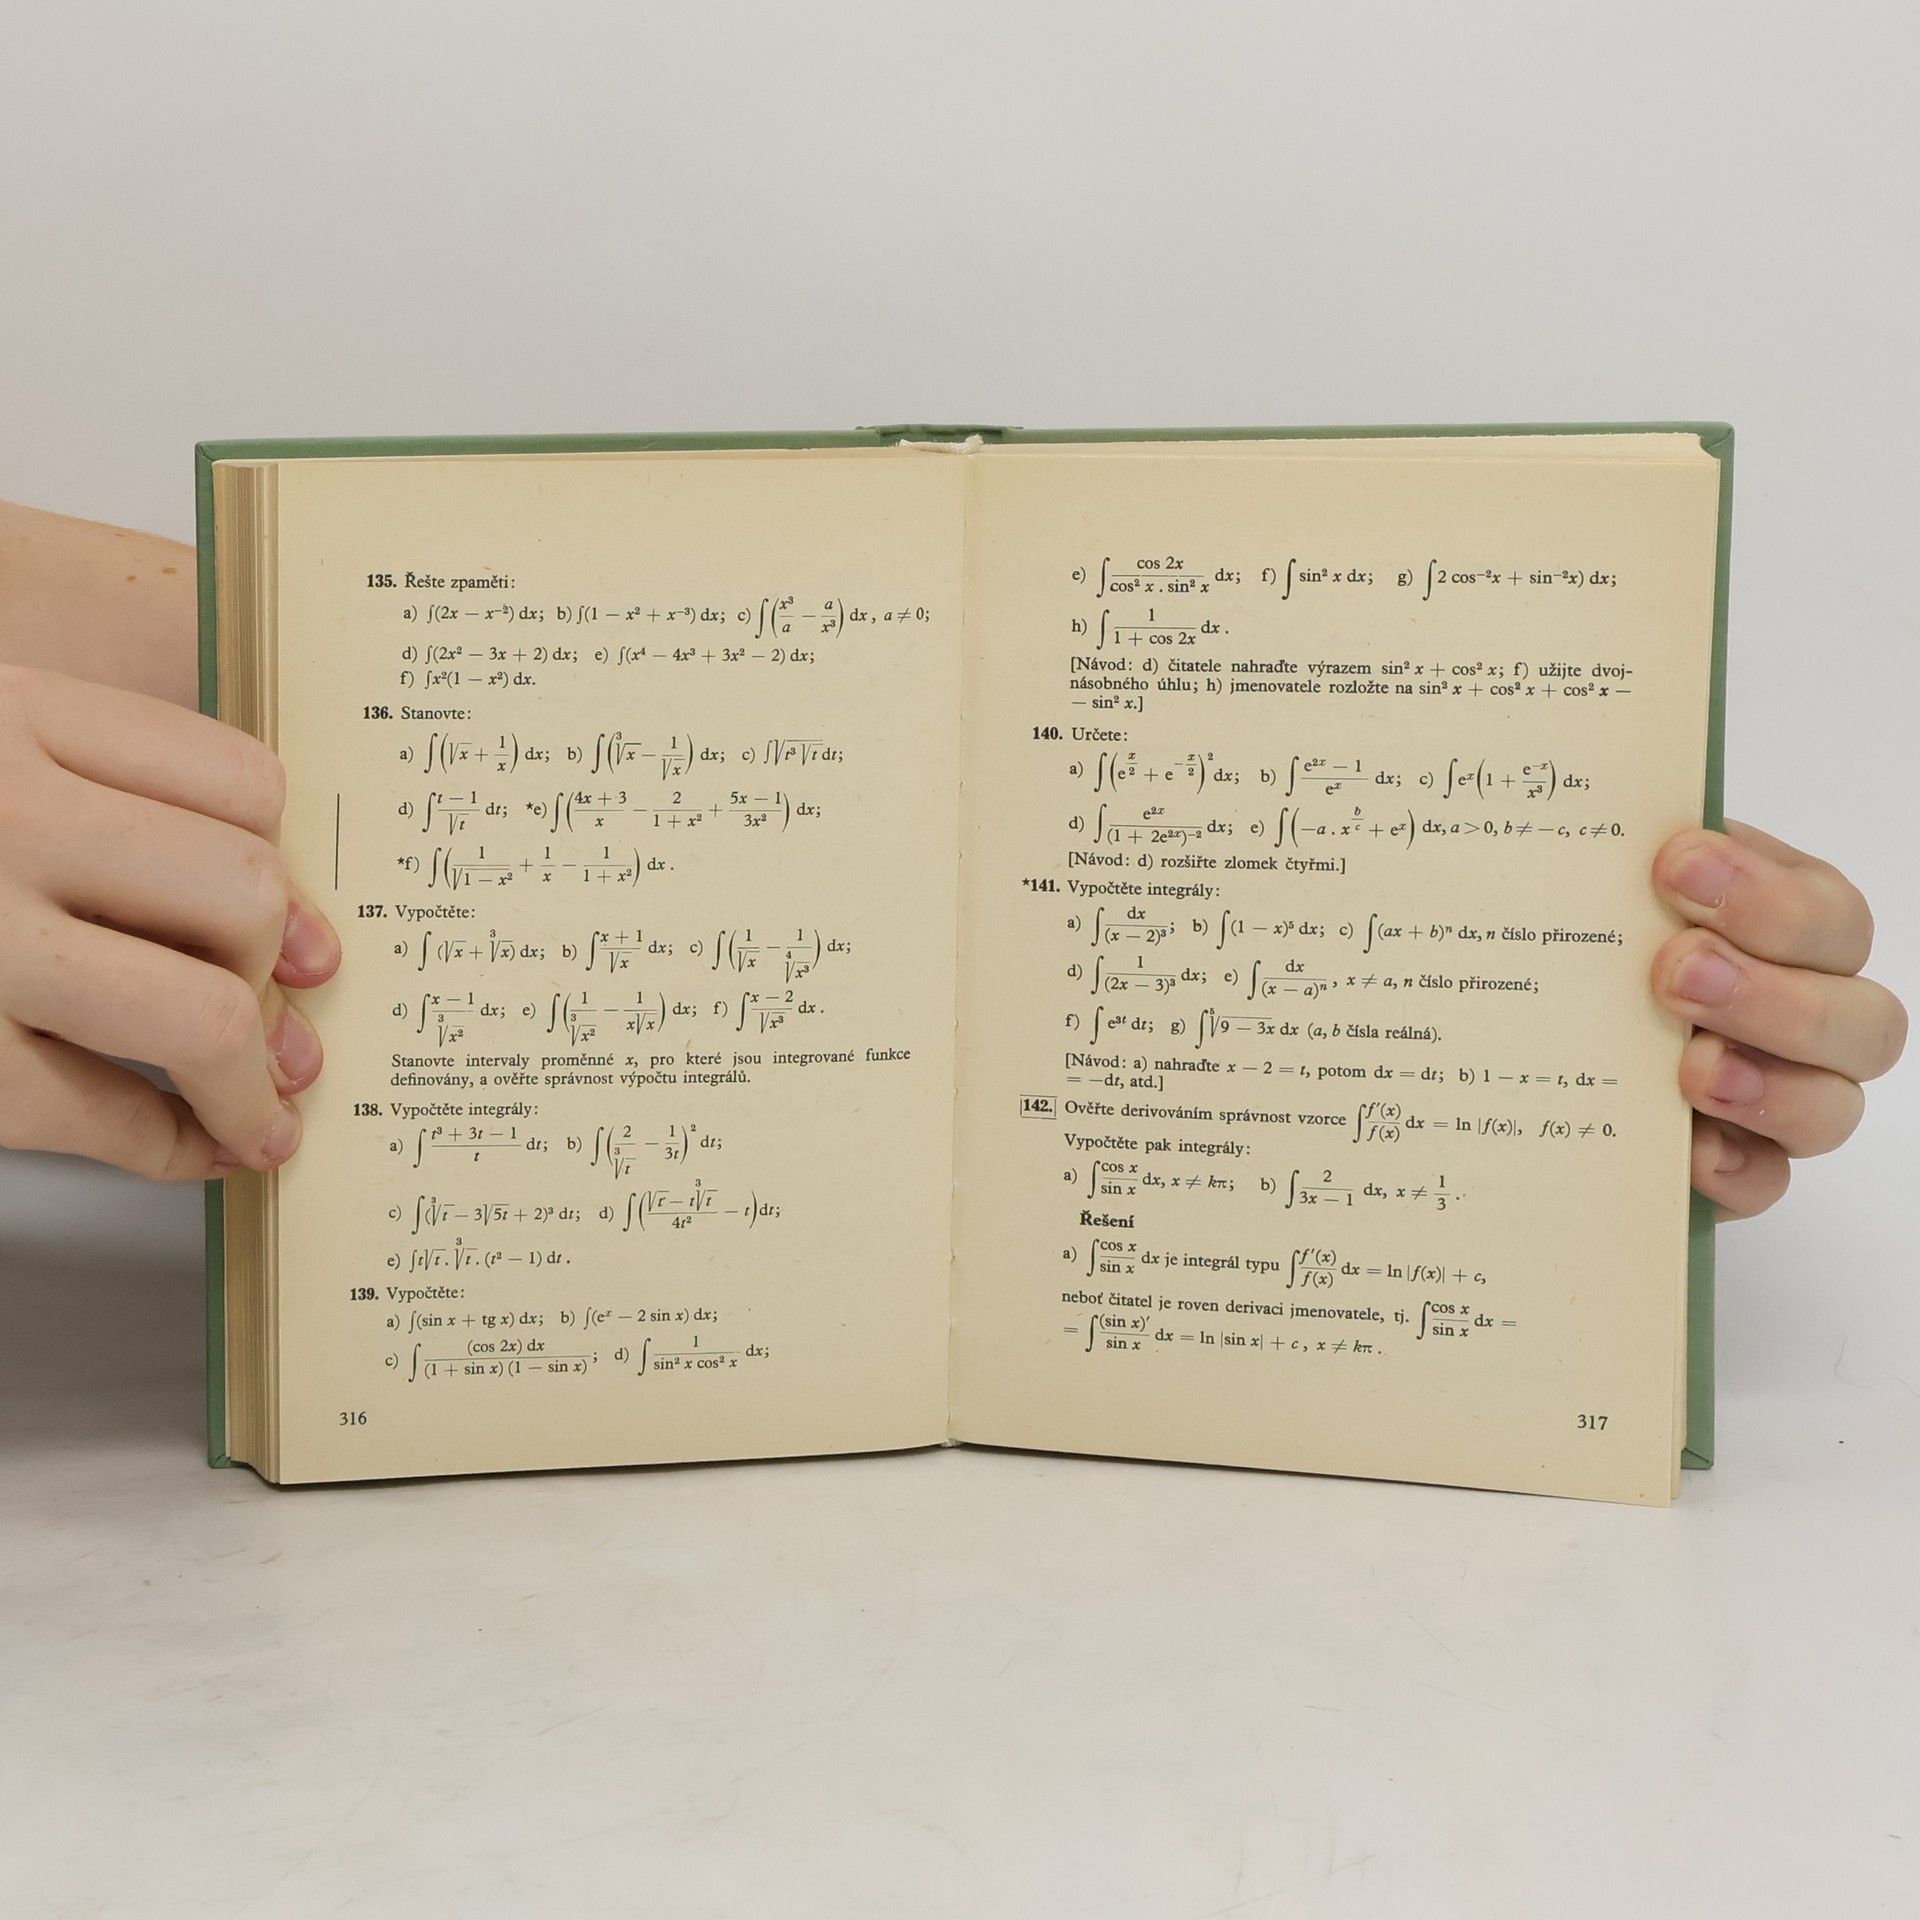 135. Řešte zpaměti:
a) ∫(2x − x⁻²) dx; b) ∫(1 − x² + x⁻³) dx; c) ∫(x³/a − a/x³) dx, a ≠ 0;
d) ∫(2x² − 3x + 2) dx; e) ∫(x⁴ − 4x³ + 3x² − 2) dx;
f) ∫x²(1 − x²) dx.
136. Stanovte:
a) ∫(√x + 1/x) dx; b) ∫(∛x − 1/√x) dx; c) ∫√(t³ √t) dt;
d) ∫(t − 1)/√t dt; *e) ∫((4x + 3)/x − 2/(1 + x²) + (5x − 1)/3x²) dx;
*f) ∫(1/√(1 − x²) + 1/x − 1/(1 + x²)) dx.
137. Vypočtěte:
a) ∫(√x + ∛x) dx; b) ∫(x + 1)/√x dx; c) ∫(1/√x − 1/∜x³) dx;
d) ∫(x − 1)/∛x² dx; e) ∫(1/∛x² − 1/x√x) dx; f) ∫(x − 2)/√x³ dx.
Stanovte intervaly proměnné x, pro které jsou integrované funkce
definovány, a ověřte správnost výpočtu integrálů.
138. Vypočtěte integrály:
a) ∫(t³ + 3t − 1)/t dt; b) ∫(2/∛t − 1/3t)² dt;
c) ∫(∛t − 3√5t + 2)³ dt; d) ∫((√t − t∛t)/4t² − t) dt;
e) ∫t√t . ∛t . (t² − 1) dt.
139. Vypočtěte:
a) ∫(sin x + tg x) dx; b) ∫(eˣ − 2 sin x) dx;
c) ∫(cos 2x) dx/(1 + sin x) (1 − sin x); d) ∫1/sin² x cos² x dx;
316
e) ∫cos 2x/cos² x . sin² x dx; f) ∫sin² x dx; g) ∫2 cos⁻²x + sin⁻²x) dx;
h) ∫1/(1 + cos 2x) dx.
[Návod: d) čitatele nahraďte výrazem sin² x + cos² x; f) užijte dvoj-
násobného úhlu; h) jmenovatele rozložte na sin² x + cos² x + cos² x —
— sin² x.]
140. Určete:
a) ∫(e^(x/2) + e^(−x/2))² dx; b) ∫(e²ˣ − 1)/eˣ dx; c) ∫eˣ(1 + e⁻ˣ/x³) dx;
d) ∫e²ˣ/(1 + 2e²ˣ)⁻² dx; e) ∫(−a . x^(b/c) + eˣ) dx, a > 0, b ≠ −c, c ≠ 0.
[Návod: d) rozšiřte zlomek čtyřmi.]
*141. Vypočtěte integrály:
a) ∫dx/(x − 2)³; b) ∫(1 − x)⁵ dx; c) ∫(ax + b)ⁿ dx, n číslo přirozené;
d) ∫1/(2x − 3)³ dx; e) ∫dx/(x − a)ⁿ, x ≠ a, n číslo přirozené;
f) ∫e³ᵗ dt; g) ∫⁵√(9 − 3x) dx (a, b čísla reálná).
[Návod: a) nahraďte x − 2 = t, potom dx = dt; b) 1 − x = t, dx =
= −dt, atd.]
142. Ověřte derivováním správnost vzorce ∫f′(x)/f(x) dx = ln |f(x)|, f(x) ≠ 0.
Vypočtěte pak integrály:
a) ∫cos x/sin x dx, x ≠ kπ; b) ∫2/(3x − 1) dx, x ≠ 1/3.
Řešení
a) ∫cos x/sin x dx je integrál typu ∫f′(x)/f(x) dx = ln |f(x)| + c,
neboť čitatel je roven derivaci jmenovatele, tj. ∫cos x/sin x dx =
= ∫(sin x)′/sin x dx = ln |sin x| + c, x ≠ kπ.
317